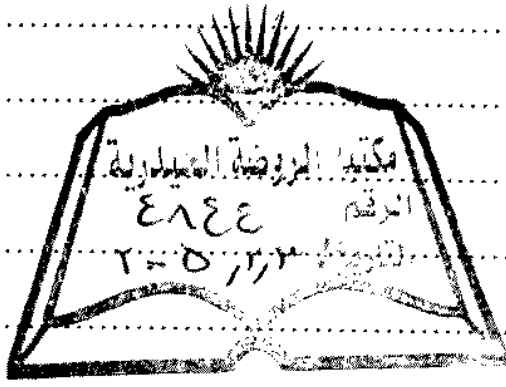 مكتبة الروضة الحيدرية
الرقم ٤٨٤٤
التاريخ